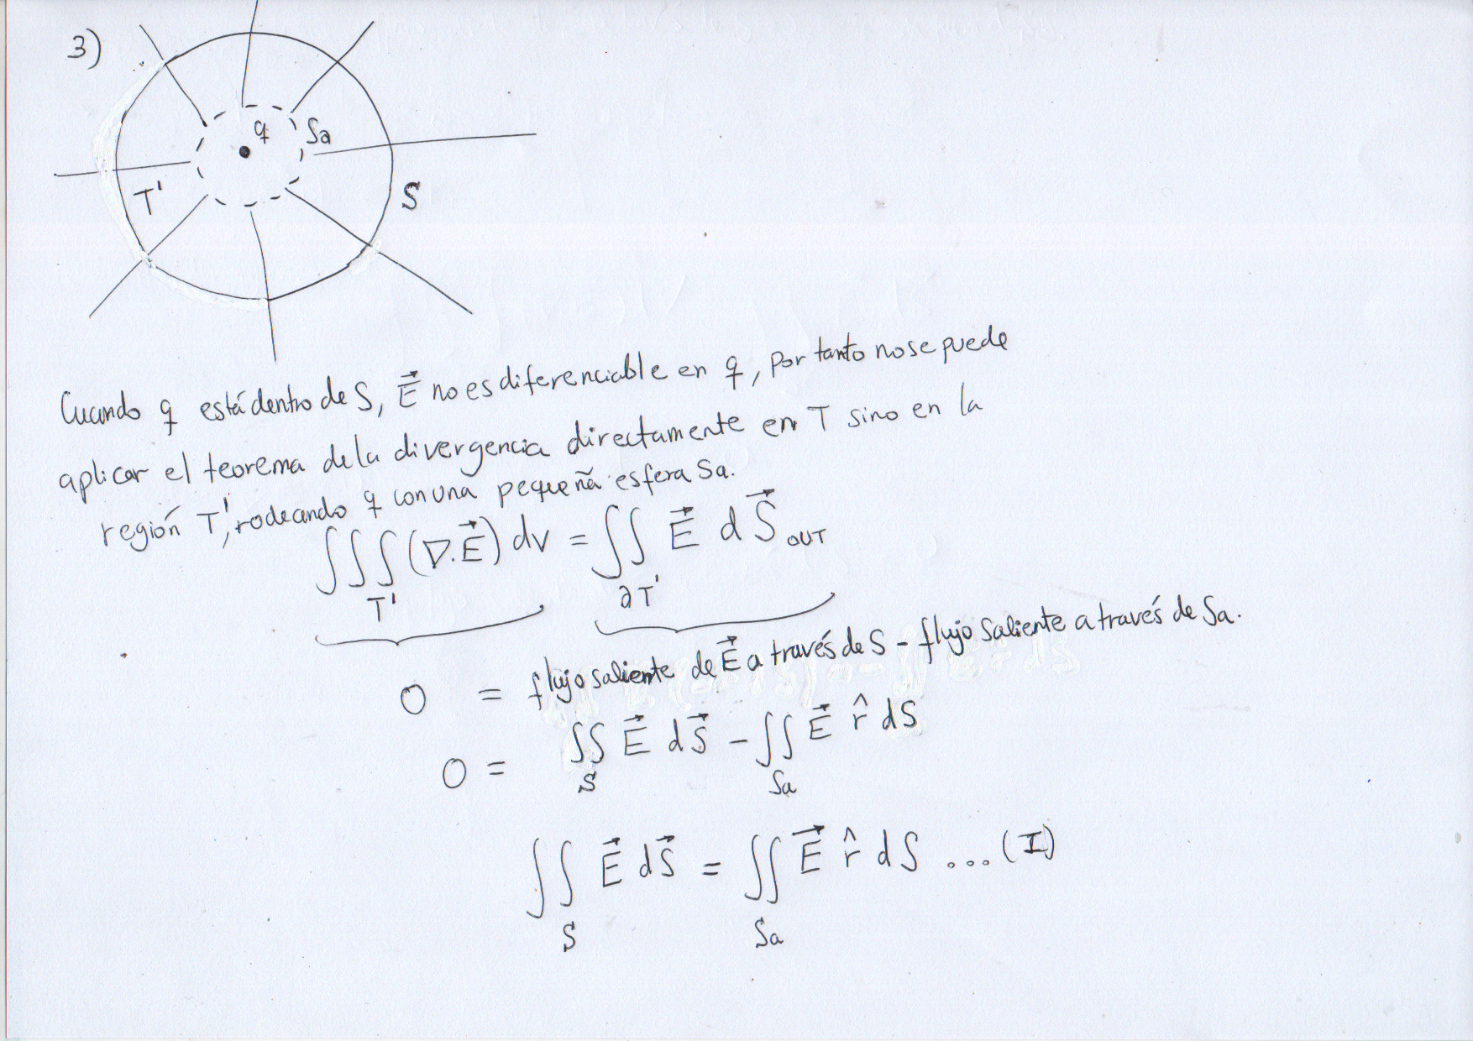 3)
q
Sa
T'
S
Cuando q está dentro de S, E⃗ no es diferenciable en q, por tanto no se puede
aplicar el teorema de la divergencia directamente en T sino en la
región T', rodeando q con una pequeña esfera Sa.
∭_T' (∇.E⃗) dv = ∬_∂T' E⃗ dS⃗ OUT
0 = flujo saliente de E⃗ a través de S - flujo saliente a través de Sa.
0 = ∬_S E⃗ dS⃗ - ∬_Sa E⃗ r̂ dS
∬_S E⃗ dS⃗ = ∬_Sa E⃗ r̂ dS ...(I)